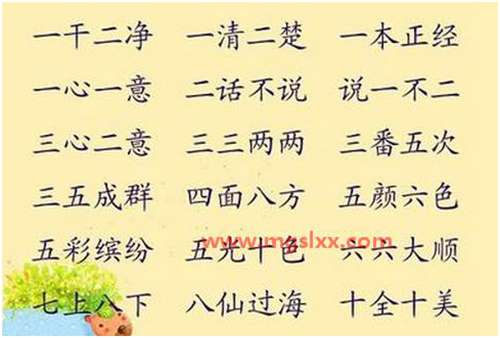 一干二净 一清二楚 一本正经
一心一意 二话不说 说一不二
三心二意 三三两两 三番五次
三五成群 四面八方 五颜六色
www.mgslxx.com
五彩缤纷 五光十色 六六大顺
七上八下 八仙过海 十全十美